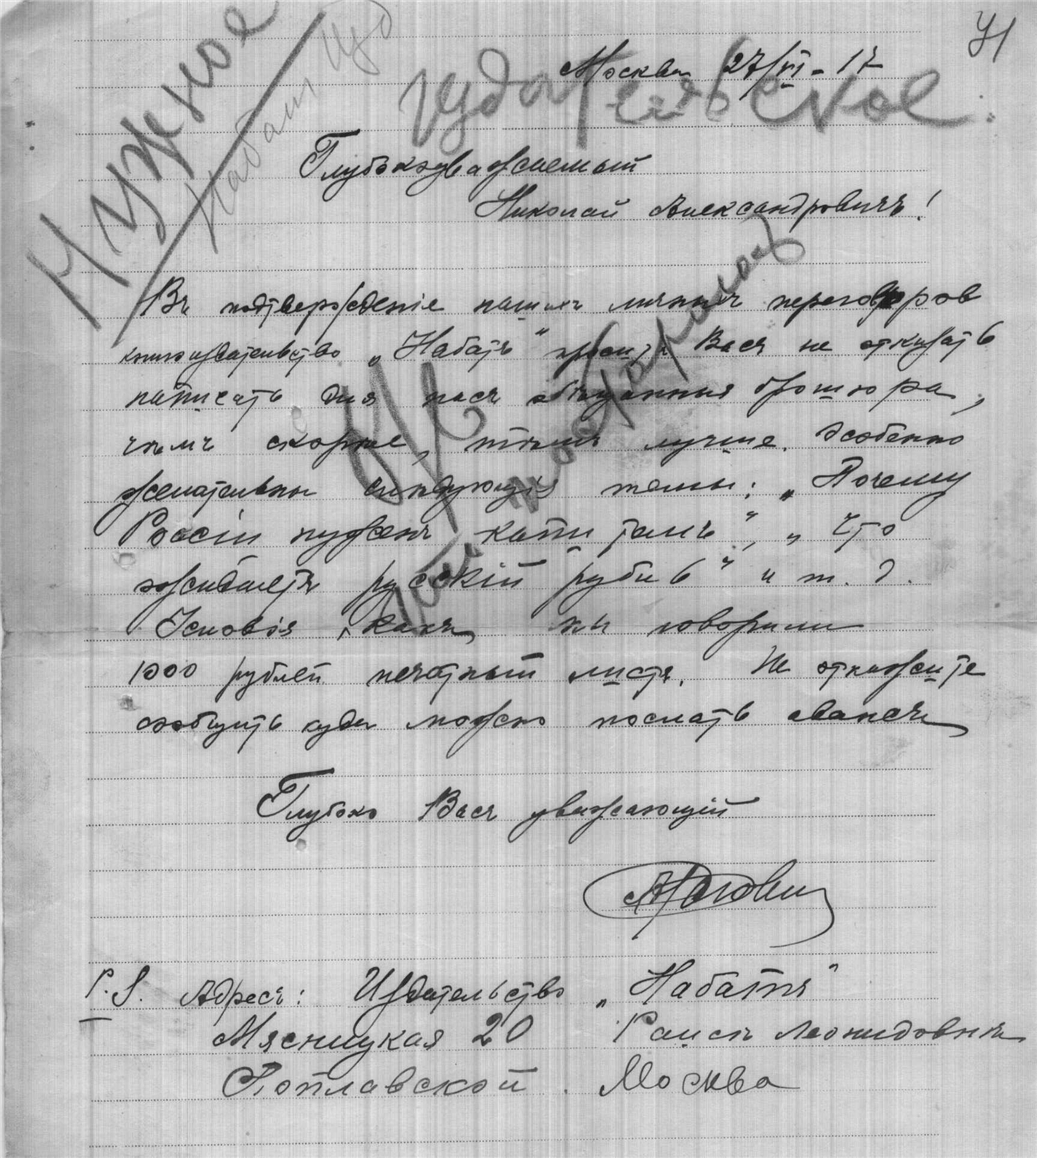 41
Нужное
Набат
Изд
Издательское.
Москва 27/VI - 17
Глубокоуважаемый
Николай Александровичъ!
Въ подтвержденіе нашихъ личныхъ переговоров
книгоиздательство „Набатъ" проситъ Васъ не отказать
написать для насъ обѣщанныя брошюры,
чѣмъ скорѣе, тѣмъ лучше. Особенно
желательны слѣдующія темы: „Почему
Россіи нуженъ капиталъ", „Что
ожидаетъ русскій рубль" и т. д.
Условія, какъ мы говорили
1000 рублей печатный листъ. Не откажите
сообщить куда можно послать авансъ
Глубоко Васъ уважающій
P.S. Адресъ: Издательство „Набатъ"
Мясницкая 20 Раисѣ Леонидовнѣ
Поплавской. Москва